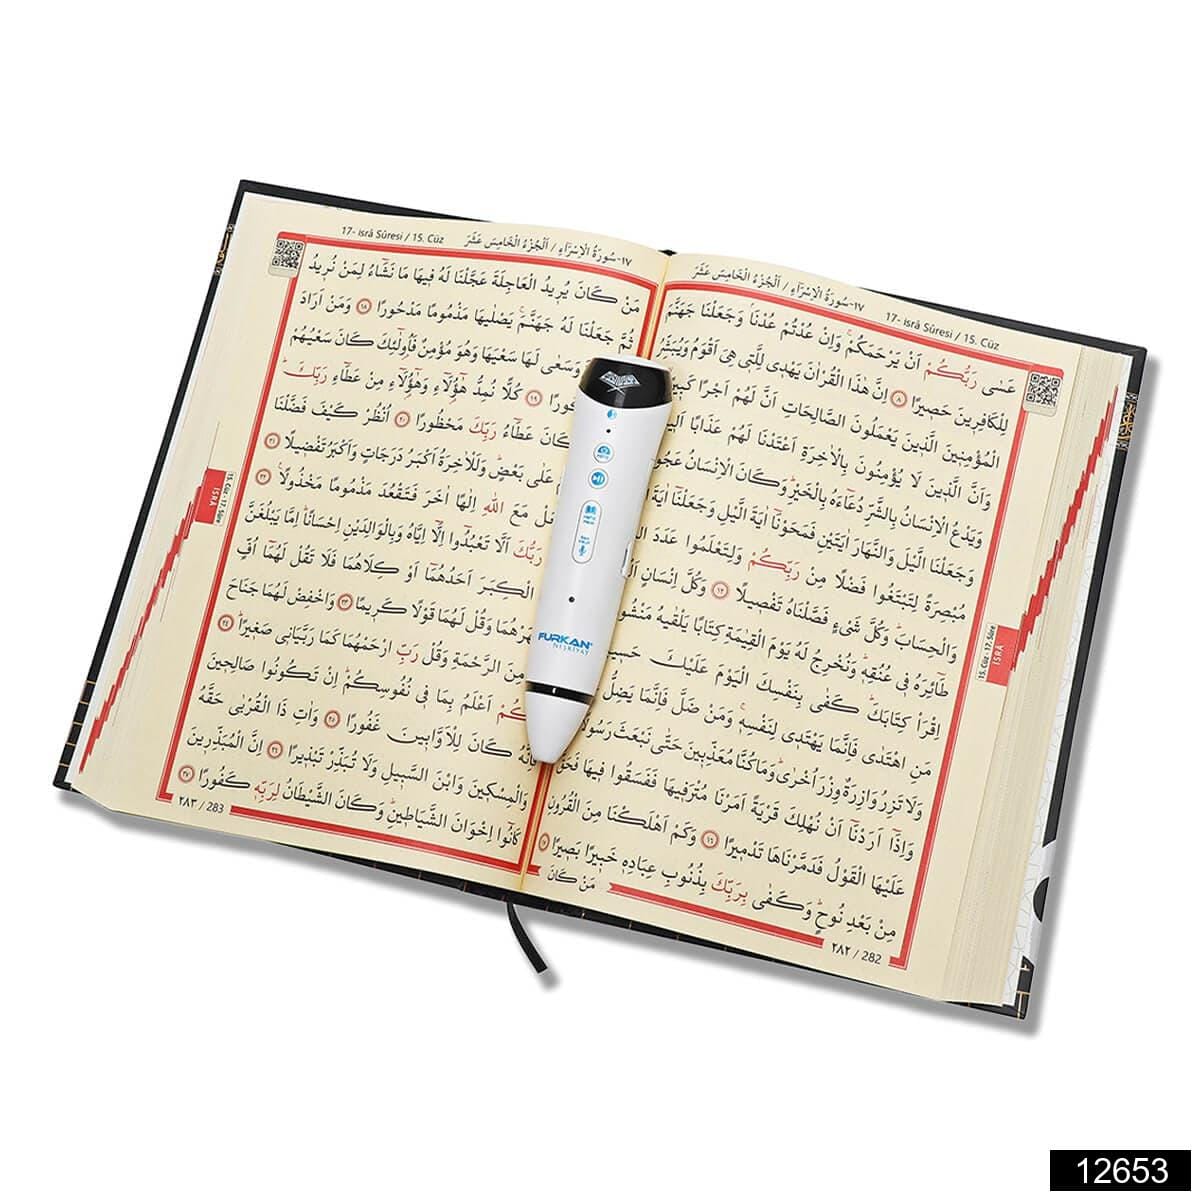 ١٧-سُورَةُ الْاِسْرَاءِ / اَلْجُزْءُ الْخَامِسَ عَشَرَ
17- isrâ Sûresi / 15. Cüz
عَسٰى رَبُّكُمْ اَنْ يَرْحَمَكُمْۚ وَاِنْ عُدْتُمْ عُدْنَاۢ وَجَعَلْنَا جَهَنَّمَ
لِلْكَافِر۪ينَ حَص۪يرًا ٨ اِنَّ هٰذَا الْقُرْاٰنَ يَهْد۪ى لِلَّت۪ى هِىَ اَقْوَمُ وَيُبَشِّرُ
الْمُؤْمِن۪ينَ الَّذ۪ينَ يَعْمَلُونَ الصَّالِحَاتِ اَنَّ لَهُمْ اَجْرًا
وَاَنَّ الَّذ۪ينَ لَا يُؤْمِنُونَ بِالْاٰخِرَةِ اَعْتَدْنَا لَهُمْ عَذَابًا
وَيَدْعُ الْاِنْسَانُ بِالشَّرِّ دُعَاءَهُ بِالْخَيْرِۜ وَكَانَ الْاِنْسَانُ
وَجَعَلْنَا الَّيْلَ وَالنَّهَارَ اٰيَتَيْنِ فَمَحَوْنَا اٰيَةَ الَّيْلِ وَجَعَلْنَا اٰيَةَ
مُبْصِرَةً لِتَبْتَغُوا فَضْلًا مِنْ رَبِّكُمْ وَلِتَعْلَمُوا عَدَدَ
وَالْحِسَابَۜ وَكُلَّ شَىْءٍ فَصَّلْنَاهُ تَفْص۪يلًا ١٢ وَكُلَّ اِنْسَانٍ
طَائِرَهُ ف۪ى عُنُقِه۪ۜ وَنُخْرِجُ لَهُ يَوْمَ الْقِيٰمَةِ كِتَابًا يَلْقٰيهُ
اِقْرَأْ كِتَابَكَۜ كَفٰى بِنَفْسِكَ الْيَوْمَ عَلَيْكَ
مَنِ اهْتَدٰى فَاِنَّمَا يَهْتَد۪ى لِنَفْسِه۪ۚ وَمَنْ ضَلَّ فَاِنَّمَا يَضِلُّ
وَلَا تَزِرُ وَازِرَةٌ وِزْرَ اُخْرٰىۜ وَمَا كُنَّا مُعَذِّب۪ينَ حَتّٰى نَبْعَثَ
وَاِذَا اَرَدْنَا اَنْ نُهْلِكَ قَرْيَةً اَمَرْنَا مُتْرَف۪يهَا فَفَسَقُوا ف۪يهَا فَحَقَّ
عَلَيْهَا الْقَوْلُ فَدَمَّرْنَاهَا تَدْم۪يرًا ١٦ وَكَمْ اَهْلَكْنَا مِنَ الْقُرُونِ
مِنْ بَعْدِ نُوحٍۜ وَكَفٰى بِرَبِّكَ بِذُنُوبِ عِبَادِه۪ خَب۪يرًا بَص۪يرًا
مَنْ كَانَ
٢٨٢ / 282
15. Cüz - 17. Sûre
İSRÂ
17- isrâ Sûresi / 15. Cüz
١٧-سُورَةُ الْاِسْرَاءِ / اَلْجُزْءُ الْخَامِسَ عَشَرَ
مَنْ كَانَ يُر۪يدُ الْعَاجِلَةَ عَجَّلْنَا لَهُ ف۪يهَا مَا نَشَاءُ لِمَنْ نُر۪يدُ
ثُمَّ جَعَلْنَا لَهُ جَهَنَّمَۚ يَصْلٰيهَا مَذْمُومًا مَدْحُورًا ١٨ وَمَنْ اَرَادَ
وَسَعٰى لَهَا سَعْيَهَا وَهُوَ مُؤْمِنٌ فَاُو۬لٰئِكَ كَانَ سَعْيُهُمْ
١٩ كُلًّا نُمِدُّ هٰؤُ۬لَاءِ وَهٰؤُ۬لَاءِ مِنْ عَطَاءِ رَبِّكَۜ
كَانَ عَطَاءُ رَبِّكَ مَحْظُورًا ٢٠ اُنْظُرْ كَيْفَ فَضَّلْنَا
عَلٰى بَعْضٍۜ وَلَلْاٰخِرَةُ اَكْبَرُ دَرَجَاتٍ وَاَكْبَرُ تَفْض۪يلًا ٢١
مَعَ اللّٰهِ اِلٰهًا اٰخَرَ فَتَقْعُدَ مَذْمُومًا مَخْذُولًا۟ ٢٢
رَبُّكَ اَلَّا تَعْبُدُوا اِلَّا اِيَّاهُ وَبِالْوَالِدَيْنِ اِحْسَانًاۜ اِمَّا يَبْلُغَنَّ
الْكِبَرَ اَحَدُهُمَا اَوْ كِلَاهُمَا فَلَا تَقُلْ لَهُمَا اُفٍّ
وَقُلْ لَهُمَا قَوْلًا كَر۪يمًا ٢٣ وَاخْفِضْ لَهُمَا جَنَاحَ
مِنَ الرَّحْمَةِ وَقُلْ رَبِّ ارْحَمْهُمَا كَمَا رَبَّيَان۪ى صَغ۪يرًا ٢٤
اَعْلَمُ بِمَا ف۪ى نُفُوسِكُمْۜ اِنْ تَكُونُوا صَالِح۪ينَ
فَاِنَّهُ كَانَ لِلْاَوَّاب۪ينَ غَفُورًا ٢٥ وَاٰتِ ذَا الْقُرْبٰى حَقَّهُ
وَالْمِسْك۪ينَ وَابْنَ السَّب۪يلِ وَلَا تُبَذِّرْ تَبْذ۪يرًا ٢٦ اِنَّ الْمُبَذِّر۪ينَ
كَانُوا اِخْوَانَ الشَّيَاط۪ينِۜ وَكَانَ الشَّيْطَانُ لِرَبِّه۪ كَفُورًا ٢٧
٢٨٣ / 283
15. Cüz - 17. Sûre
İSRÂ
FURKAN
NEŞRİYAT
12653